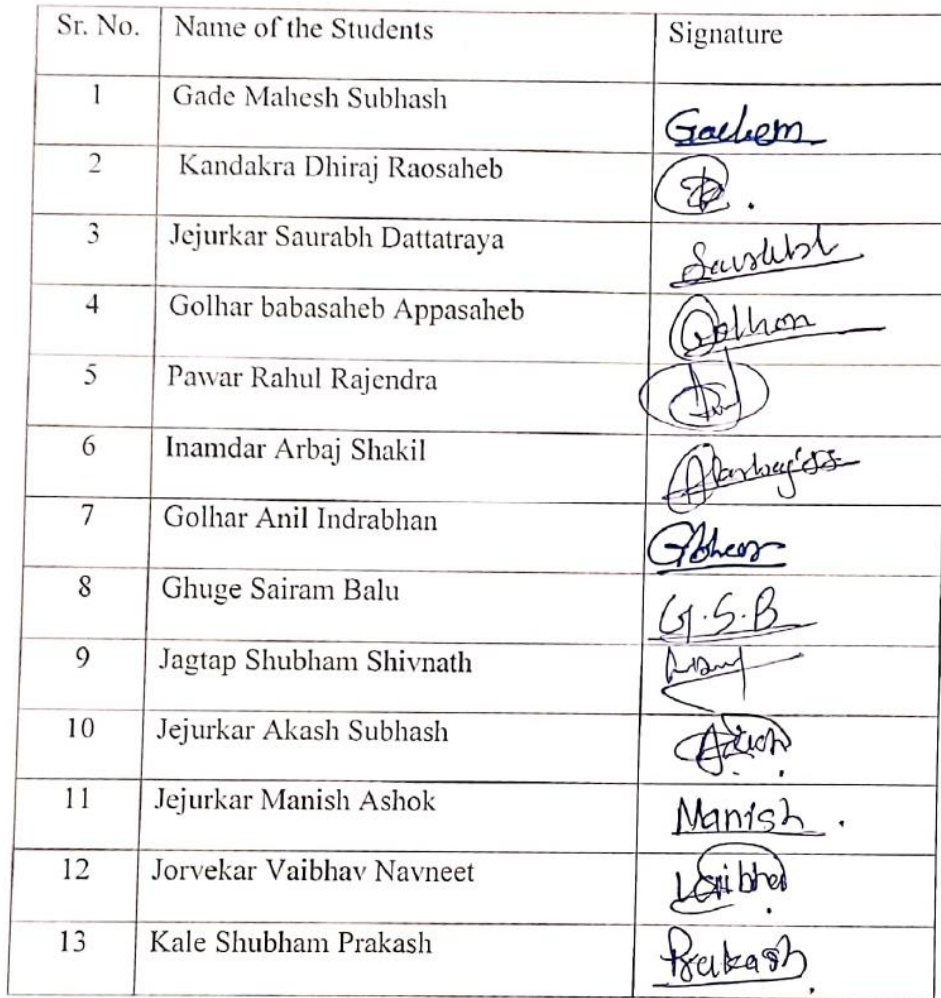 Sr. No. Name of the Students Signature
1 Gade Mahesh Subhash
2 Kandakra Dhiraj Raosaheb
3 Jejurkar Saurabh Dattatraya
4 Golhar babasaheb Appasaheb
5 Pawar Rahul Rajendra
6 Inamdar Arbaj Shakil
7 Golhar Anil Indrabhan
8 Ghuge Sairam Balu G.S.B
9 Jagtap Shubham Shivnath
10 Jejurkar Akash Subhash
11 Jejurkar Manish Ashok Manish.
12 Jorvekar Vaibhav Navneet
13 Kale Shubham Prakash Prakash.